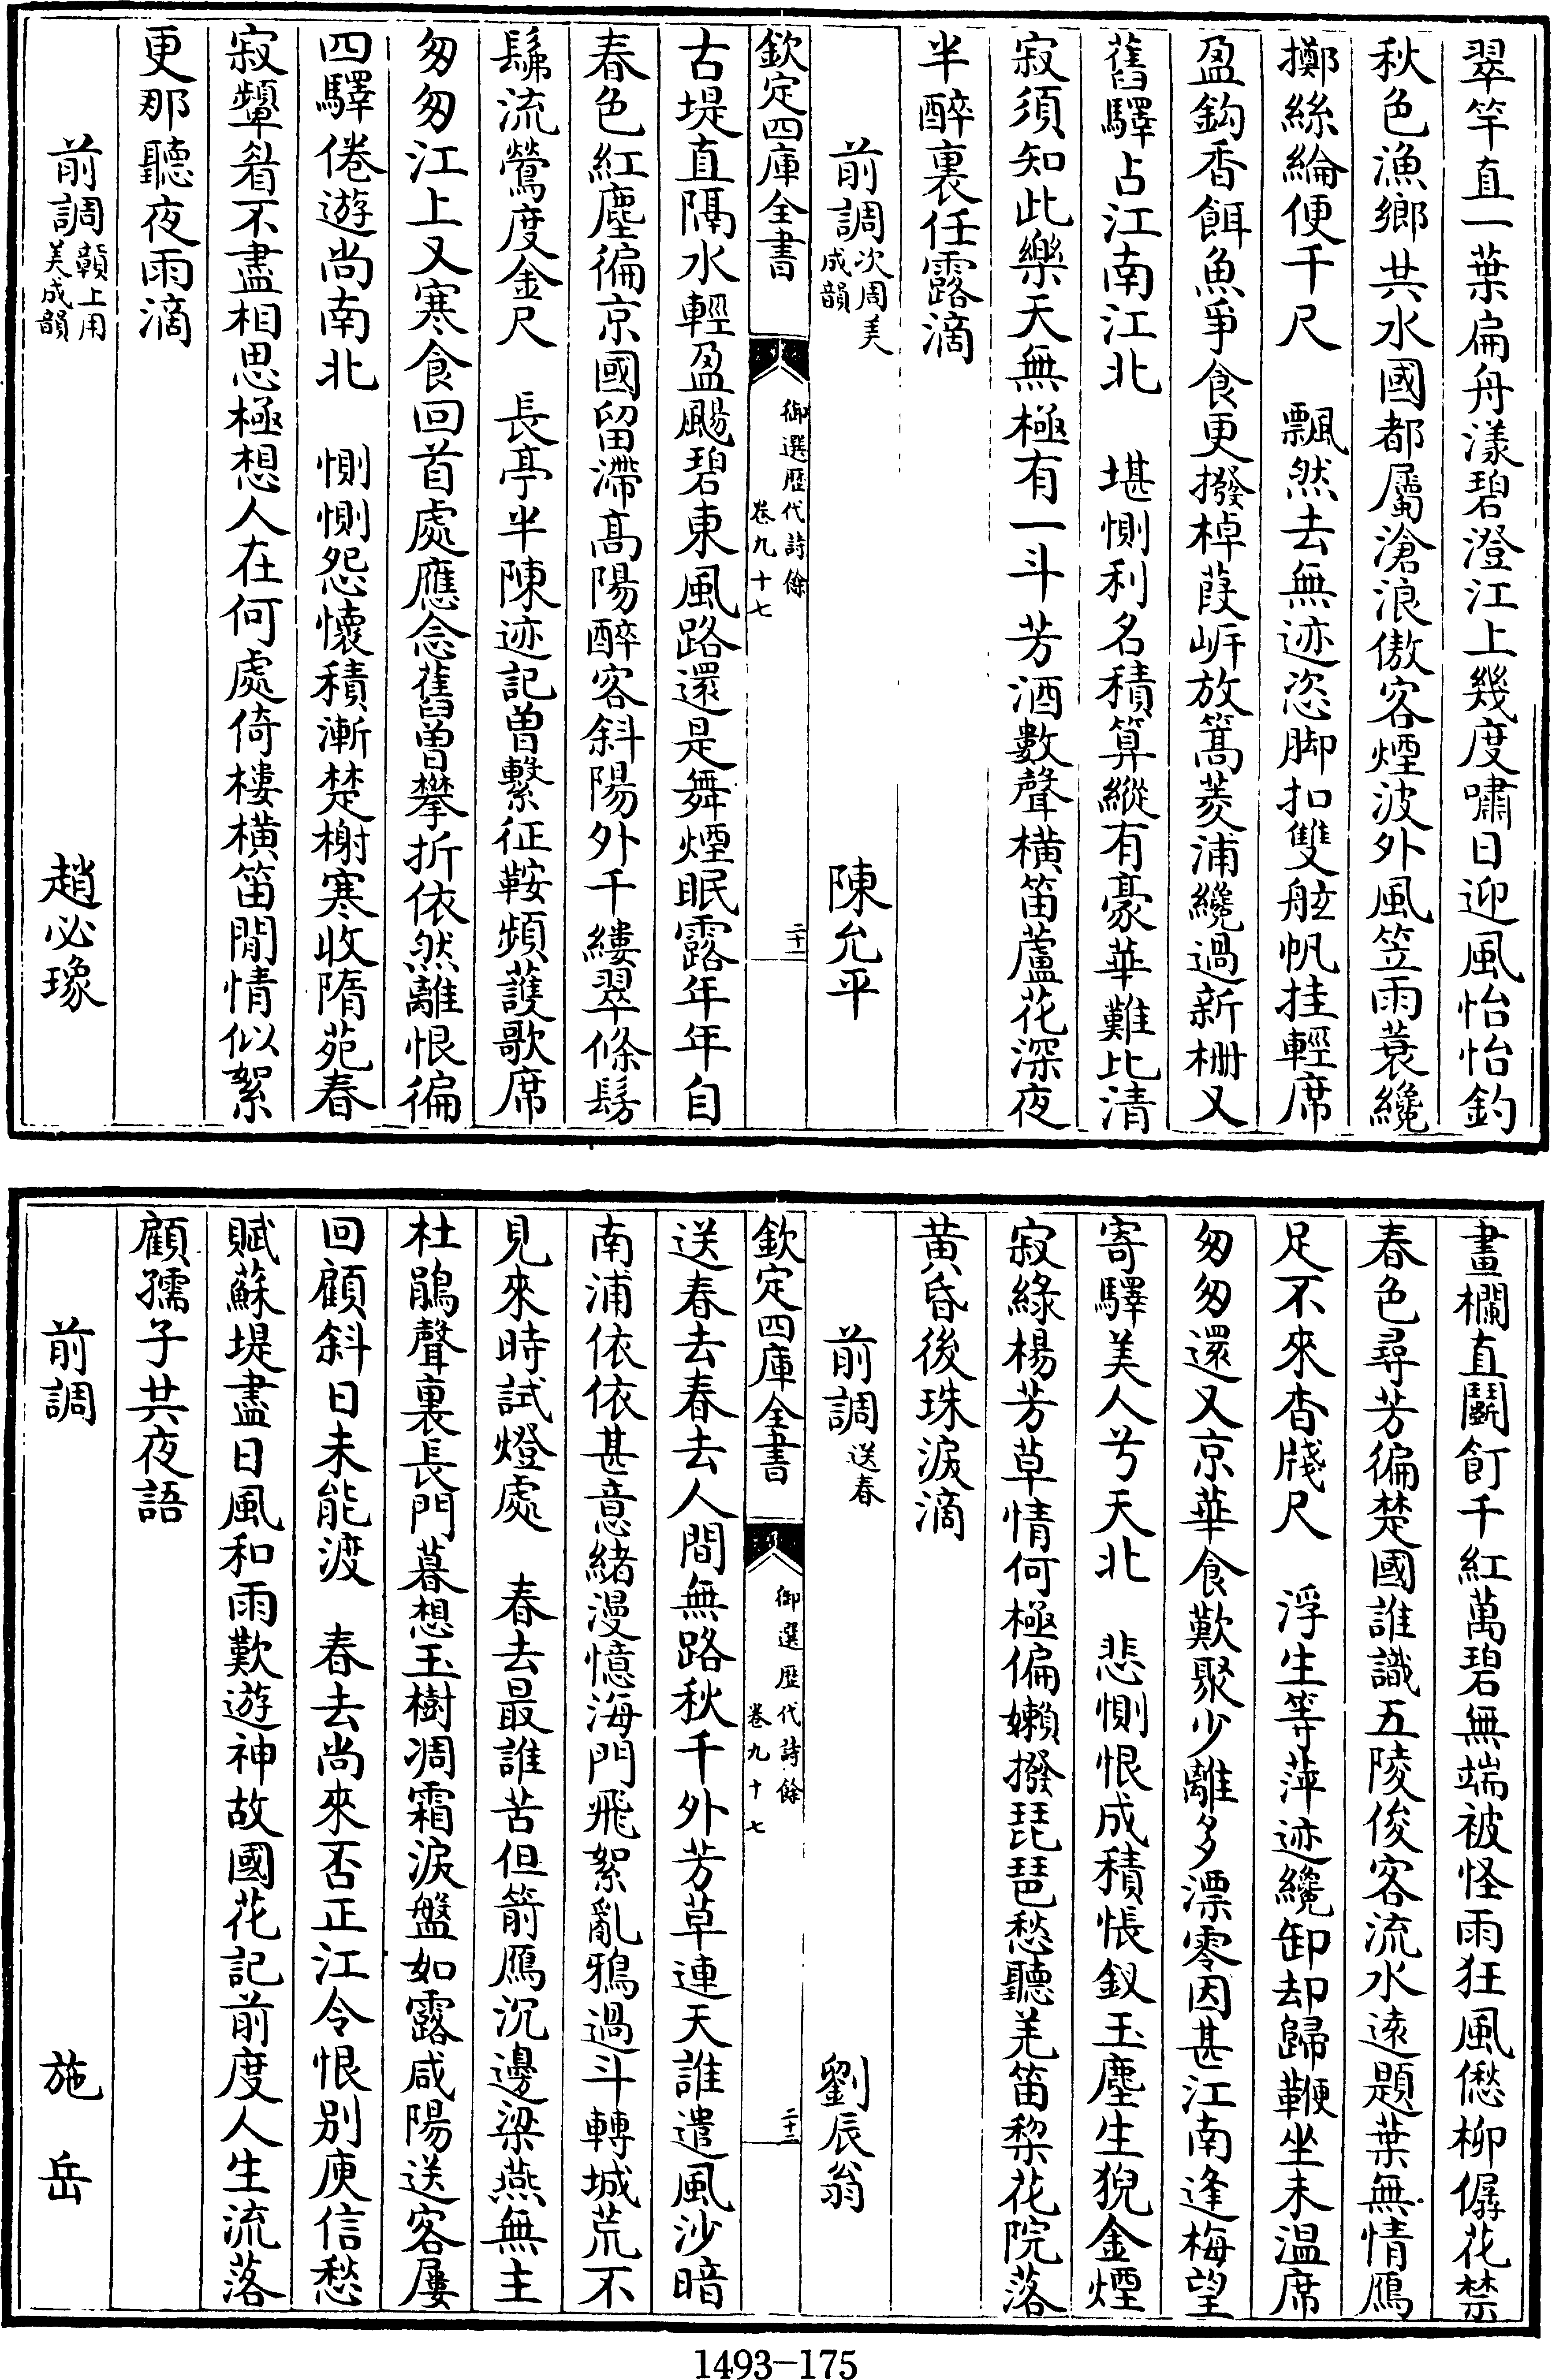 翠竿直一葉扁舟漾碧澄江上幾度嘯日迎風怡怡釣
秋色漁鄉共水國都屬滄浪傲客煙波外風笠雨蓑纔
擲絲綸便千尺　飄然去無迹恣脚扣雙舷帆挂輕席
盈鈎香餌魚爭食更撥棹葭岍放篙菱浦纔過新栅又
舊驛占江南江北　堪惻利名積算縱有豪華難比清
寂須知此樂天無極有一斗芳酒數聲橫笛蘆花深夜
半醉裏任露滴
前調次周美成韻　陳允平
欽定四庫全書　御選歷代詩餘卷九十七　二十一
古堤直隔水輕盈颺碧東風路還是舞煙眠露年年自
春色紅塵徧京國留滯髙陽醉客斜陽外千縷翠條髣
髴流鶯度金尺　長亭半陳迹記曽繫征鞍頻護歌席
匆匆江上又寒食回首處應念舊曽攀折依然離恨徧
四驛倦遊尚南北　惻惻怨懷積漸楚榭寒收隋苑春
寂顰眉不盡相思極想人在何處倚樓橫笛閒情似絮
更那聽夜雨滴
前調贑上用美成韻　趙必瑑
畫欄直鬭飣千紅萬碧無端被怪雨狂風僽柳僝花禁
春色尋芳徧楚國誰識五陵俊客流水遠題葉無情鴈
足不來杳牋尺　浮生等萍迹纔卸却歸鞭坐未温席
匆匆還又京華食歎聚少離多漂零因甚江南逢梅望
寄驛美人兮天北　悲惻恨成積悵釵玉塵生猊金煙
寂綠楊芳草情何極偏嬾撥琵琶愁聽羌笛棃花院落
黄昏後珠淚滴
前調送春　劉辰翁
欽定四庫全書　御選歷代詩餘卷九十七　二十二
送春去春去人間無路秋千外芳草連天誰遣風沙暗
南浦依依甚意緒漫憶海門飛絮亂鴉過斗轉城荒不
見來時試燈處　春去最誰苦但箭鴈沉邊梁燕無主
杜鵑聲裏長門暮想玉樹凋霜淚盤如露咸陽送客屢
回顧斜日未能渡　春去尚來否正江令恨别庾信愁
賦蘇堤盡日風和雨歎遊神故國花記前度人生流落
顧孺子共夜語
前調　施岳
1493-175